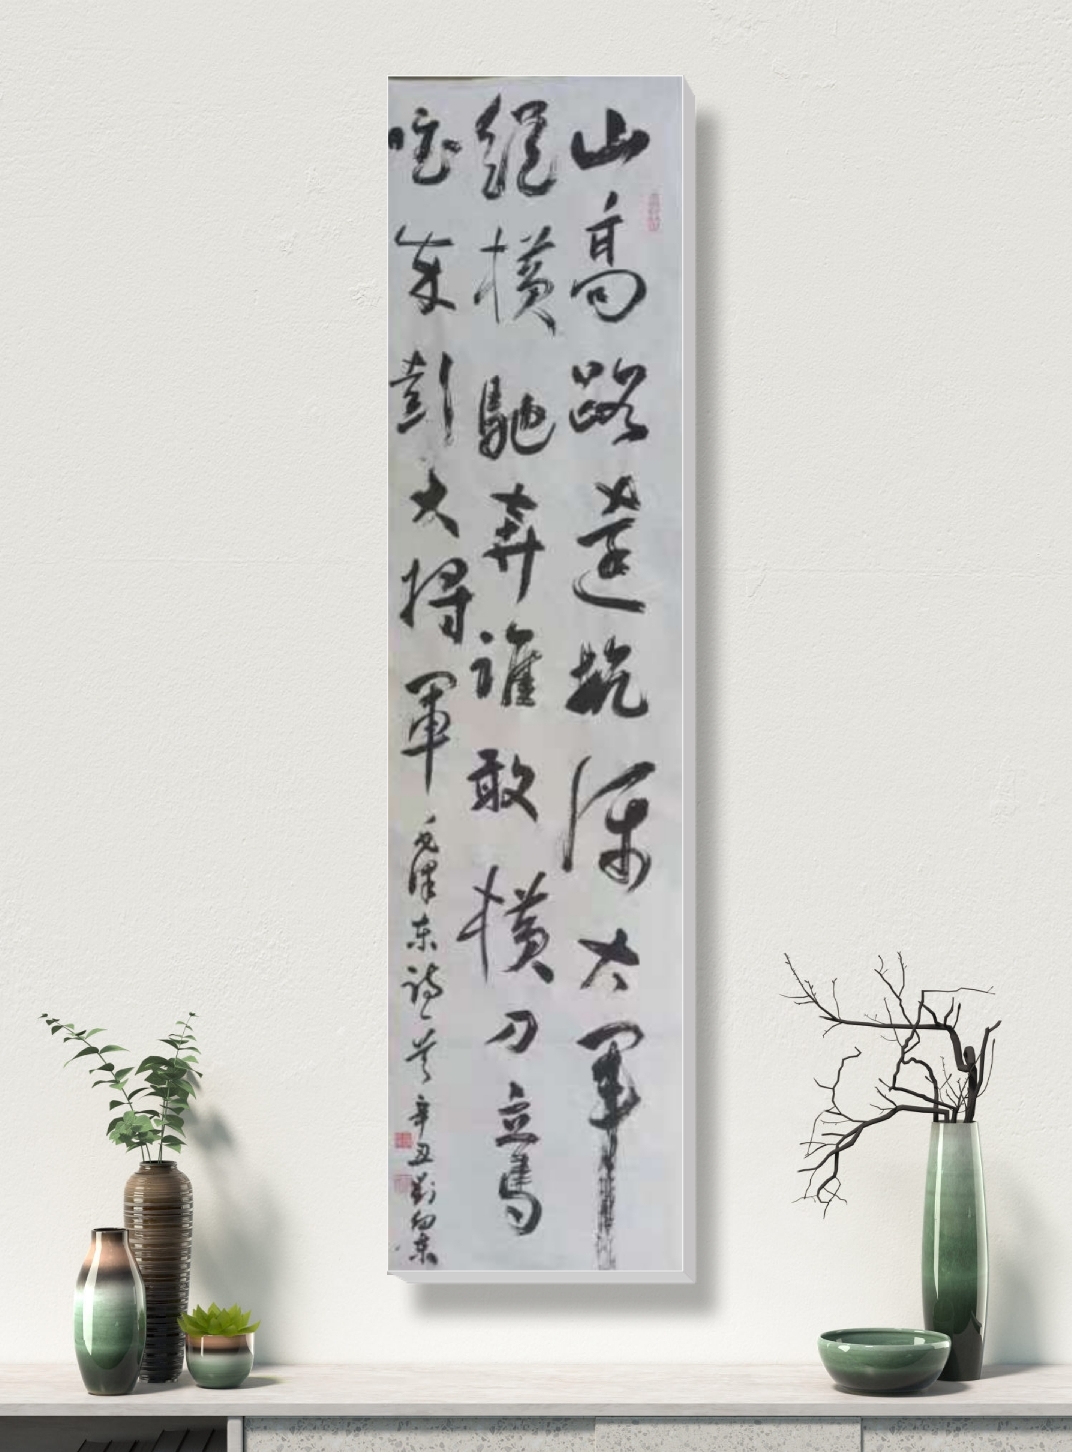 山高路遠坑深大軍
縱橫馳奔誰敢橫刀立馬
唯我彭大將軍 毛澤东詩一首 辛丑劉向东